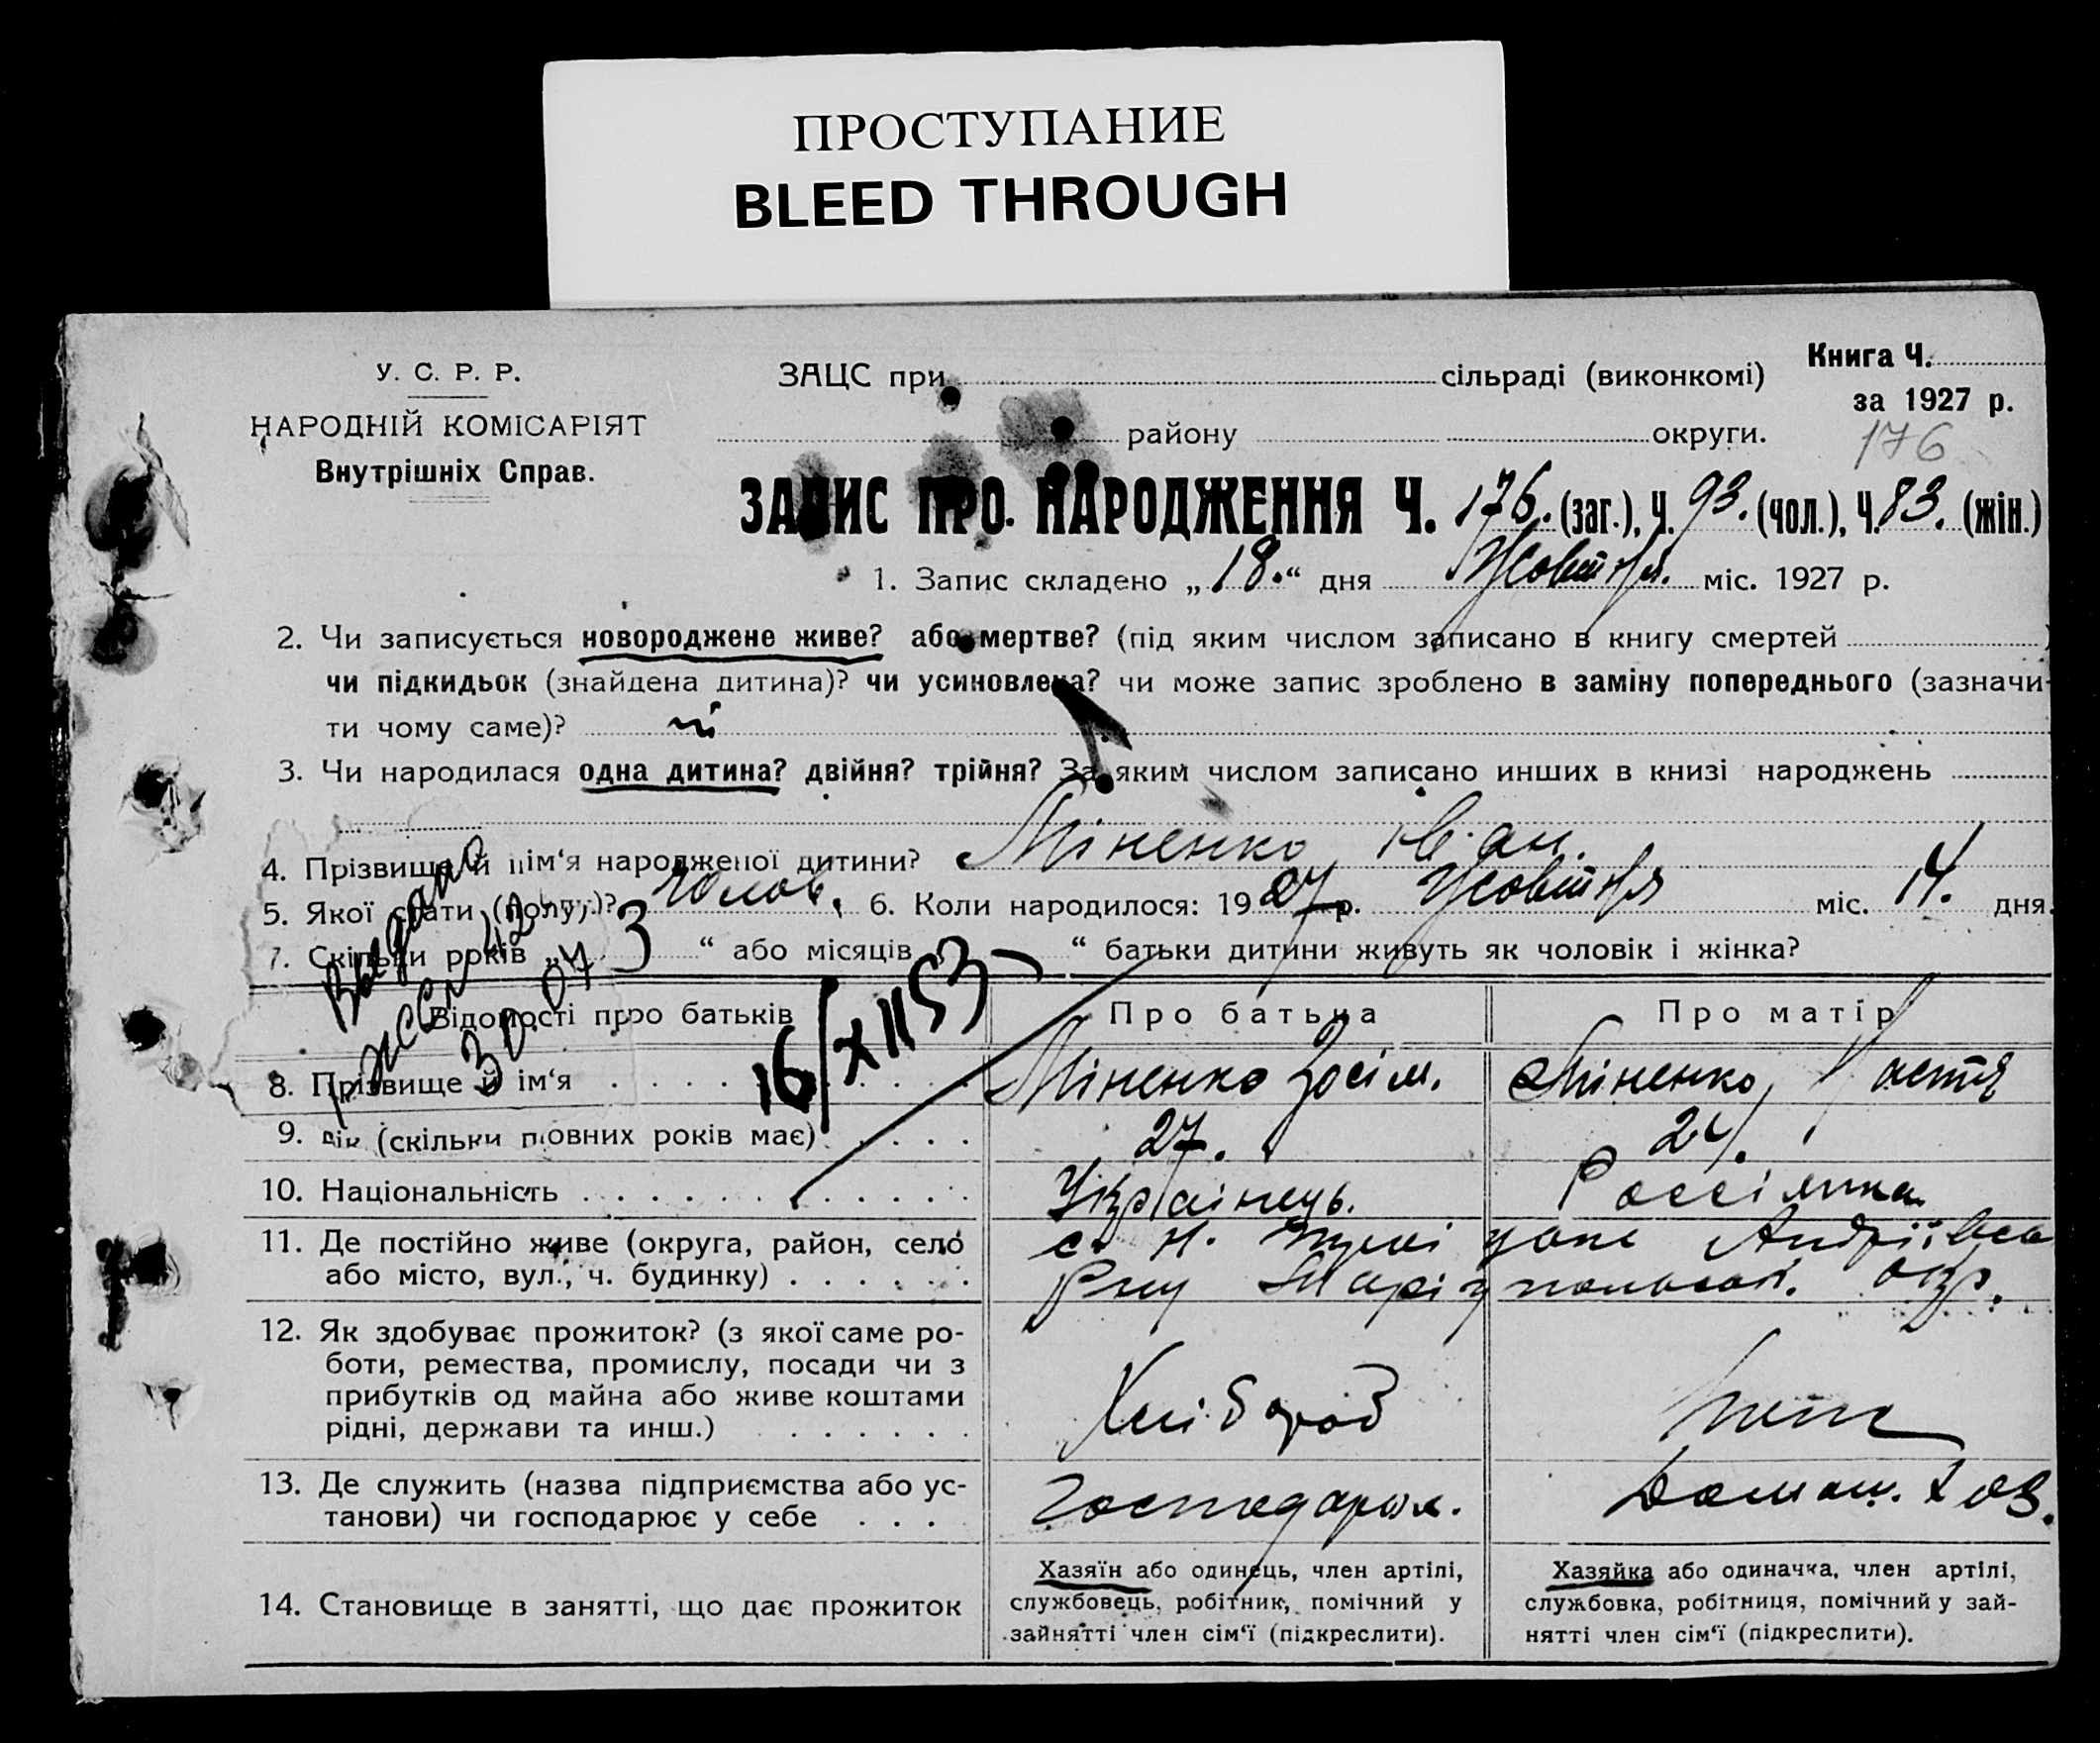 ПРОСТУПАНИЕ
BLEED THROUGH
У. С. Р. Р.
НАРОДНІЙ КОМІСАРІЯТ
Внутрішніх Справ.
ЗАЦС при сільраді (виконкомі)
району округи.
Книга Ч.
за 1927 р.
176
ЗАПИС ПРО НАРОДЖЕННЯ Ч. 176. (заг.), Ч. 93. (чол.), Ч. 83. (жін.)
1. Запис складено „18.“ дня Жовтня. міс. 1927 р.
2. Чи записується новороджене живе? або мертве? (під яким числом записано в книгу смертей )
чи підкидьок (знайдена дитина)? чи усиновлена? чи може запис зроблено в заміну попереднього (зазначи-
ти чому саме)? ні
3. Чи народилася одна дитина? двійня? трійня? За яким числом записано инших в книзі народжень
4. Прізвище й ім‘я народженої дитини? Міненко Іван.
5. Якої стати (полу)? чолов. 6. Коли народилося: 1927 р. Жовтня міс. 14. дня.
7. Скільки років „ 3 “ або місяців „ — “ батьки дитини живуть як чоловік і жінка?
Выдано
30 07
16/XII 53
Відомості про батьків Про батька Про матір
8. Прізвище й ім‘я . . . Міненко Зосім. Міненко, Настя
9. Вік (скільки повних років має) . . . . 27. 24.
10. Національність . . . . . . . . . . . . Українець. Россіянка
11. Де постійно живе (округа, район, село
або місто, вул., ч. будинку) . . . . . .
с. Андріївсь
Р-ну Маріупольськ. окр.
12. Як здобуває прожиток? (з якої саме ро-
боти, ремества, промислу, посади чи з
прибутків од майна або живе коштами
рідні, держави та инш.) . . . . . . .
Хлібороб
13. Де служить (назва підприємства або ус-
танови) чи господарює у себе . . . .
Господарює. Домаш. хоз.
14. Становище в занятті, що дає прожиток
Хазяїн або одинець, член артілі,
службовець, робітник, помічний у
зайнятті член сім‘ї (підкреслити).
Хазяйка або одиначка, член артілі,
службовка, робітниця, помічний у зай-
нятті член сім‘ї (підкреслити).